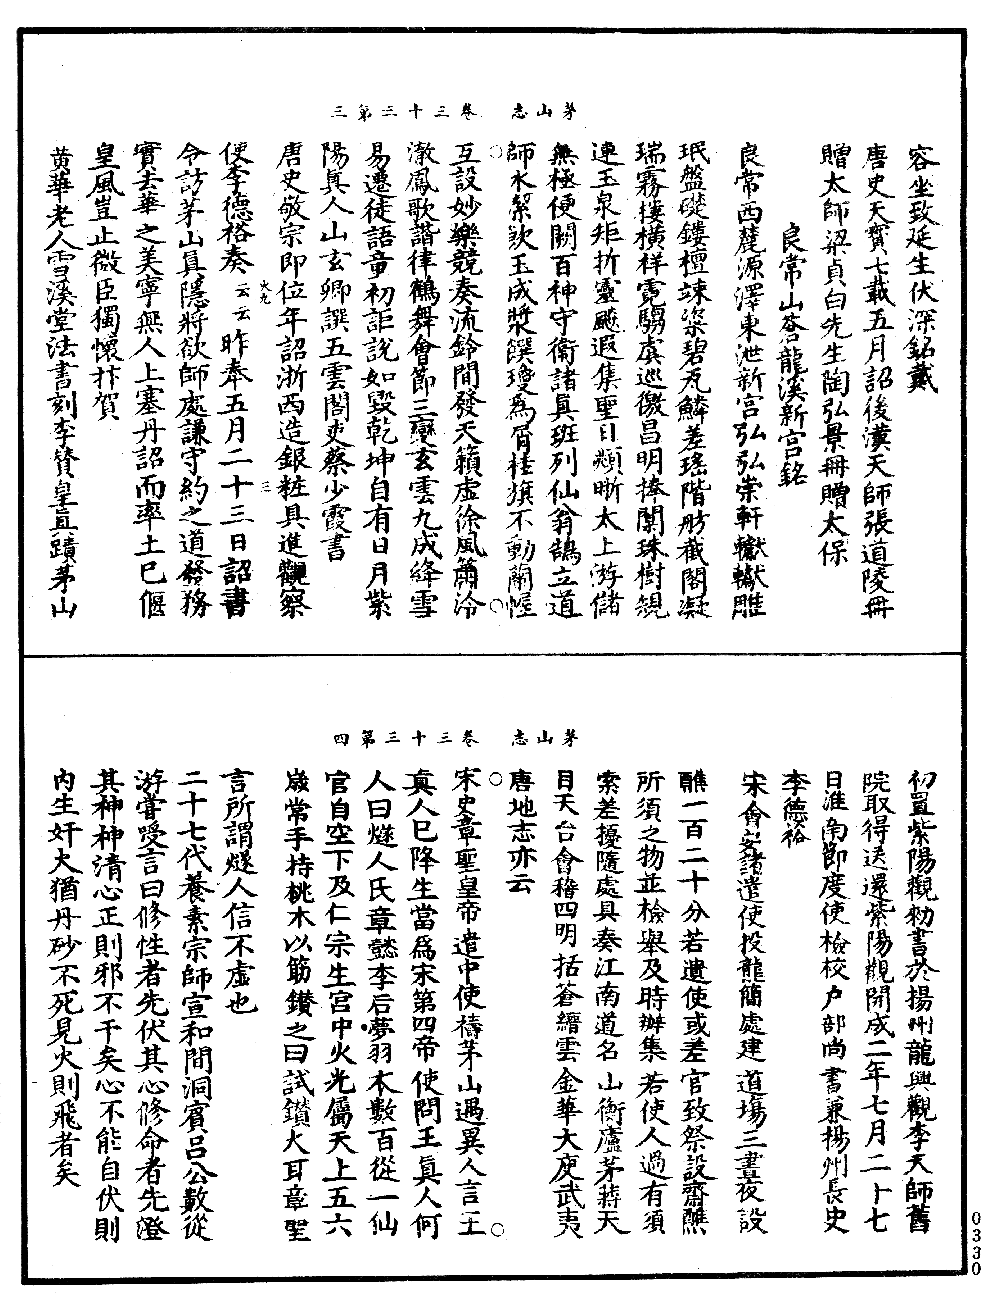 茅山志　卷三十三第三
容坐致延生伏深銘戴
唐史天寶七載五月詔後漢天師張道陵冊
贈太師梁貞白先生陶弘景冊贈太保
良常山荅龍溪新宮銘
良常西麓源澤東泄新宮弘弘崇軒轍轍雕
珉盤礎鏤檀竦楶碧瓦鱗差瑤階肪截閣凝
瑞霧樓橫祥霓騶虞巡徼昌明捧闑珠樹規
連玉泉矩折靈飈遐集聖日頫晣太上游儲
無極便闕百神守衛諸真班列仙翁鵠立道
師冰絜飲玉成漿饌瓊為屑桂旗不動蘭幄
互設妙樂競奏流鈴間發天籟虛徐風簫泠
澈鳳歌諧律鶴舞會節三變玄雲九成絳雪
易遷徒語童初詎說如毀乾坤自有日月紫
陽真人山玄卿譔五雲閣吏蔡少霞書
唐史敬宗即位年詔浙西造銀粧具進觀察
使李德裕奏云云昨奉五月二十三日詔書
令訪茅山真隱將欲師處謙守約之道發務
實去華之美寧無人上塞丹詔而率土已偃
皇風豈止微臣獨懷抃賀
黃華老人雪溪堂法書刻李贊皇真蹟茅山
茅山志　卷三十三第四
初置紫陽觀勑書於揚州龍興觀李天師舊
院取得送還紫陽觀開成二年七月二十七
日淮南節度使檢校戶部尚書兼揚州長史
李德裕
宋會要諸遣使投龍簡處建道場三晝夜設
醮一百二十分若遣使或差官致祭設齋醮
所須之物並檢舉及時辦集若使人過有須
索差擾隨處具奏江南道名山衡廬茅蔣天
目天台會稽四明括蒼縉雲金華大庾武夷
唐地志亦云
宋史章聖皇帝遣中使禱茅山遇異人言王
真人已降生當為宋第四帝使問王真人何
人曰燧人氏章懿李后夢羽衣數百從一仙
官自空下及仁宗生宮中火光屬天上五六
歲常手持桃木以筋鑽之曰試鑽火耳章聖
言所謂燧人信不虛也
二十七代養素宗師宣和間洞賓呂公數從
游嘗受言曰修性者先伏其心修命者先澄
其神神清心正則邪不干矣心不能自伏則
內生奸大猶丹砂不死見火則飛者矣
0330